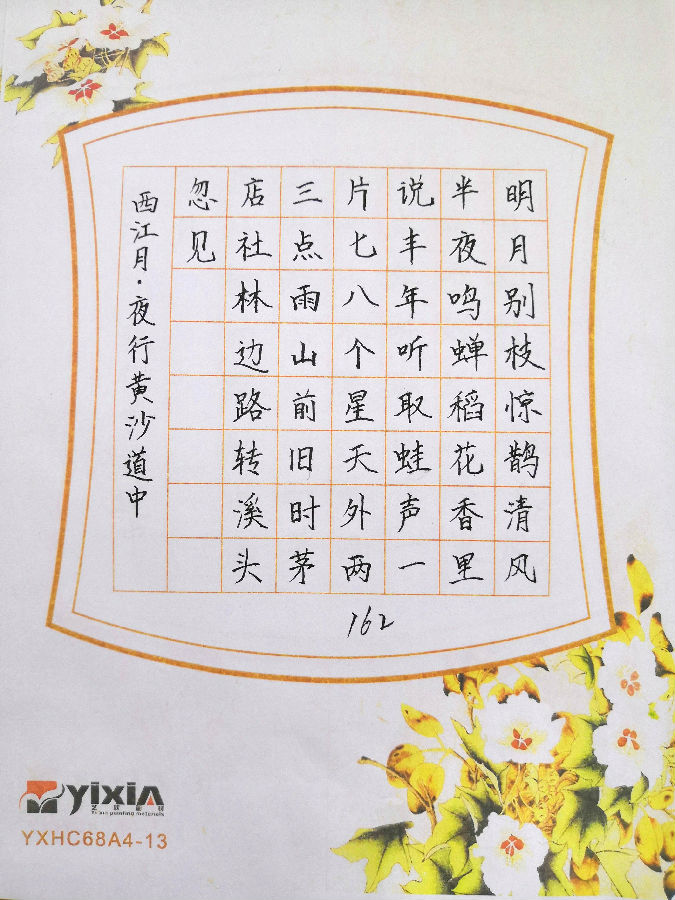 明月别枝惊鹊清风
半夜鸣蝉稻花香里
说丰年听取蛙声一
片七八个星天外两
三点雨山前旧时茅
店社林边路转溪头
忽见
西江月·夜行黄沙道中
162
yixin
painting materials
YXHC68A4-13